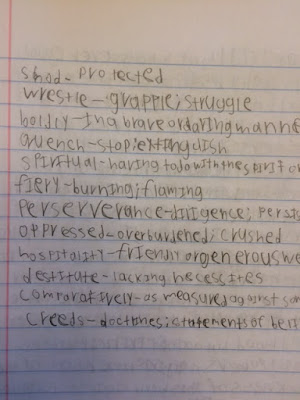 shod- protected
wrestle-grapple; struggle
boldly-in a brave or daring manne
quench-stop; extingdish
spiritual-having to do with the spirit or
fiery-burning; flaming
perserverance-diligence; persis
oppressed-overburdened; crushed
hospitality-friendly or generous we
destitate-lacking necescites
comparatively-as measured against som
creeds-doctrines; statements of beli